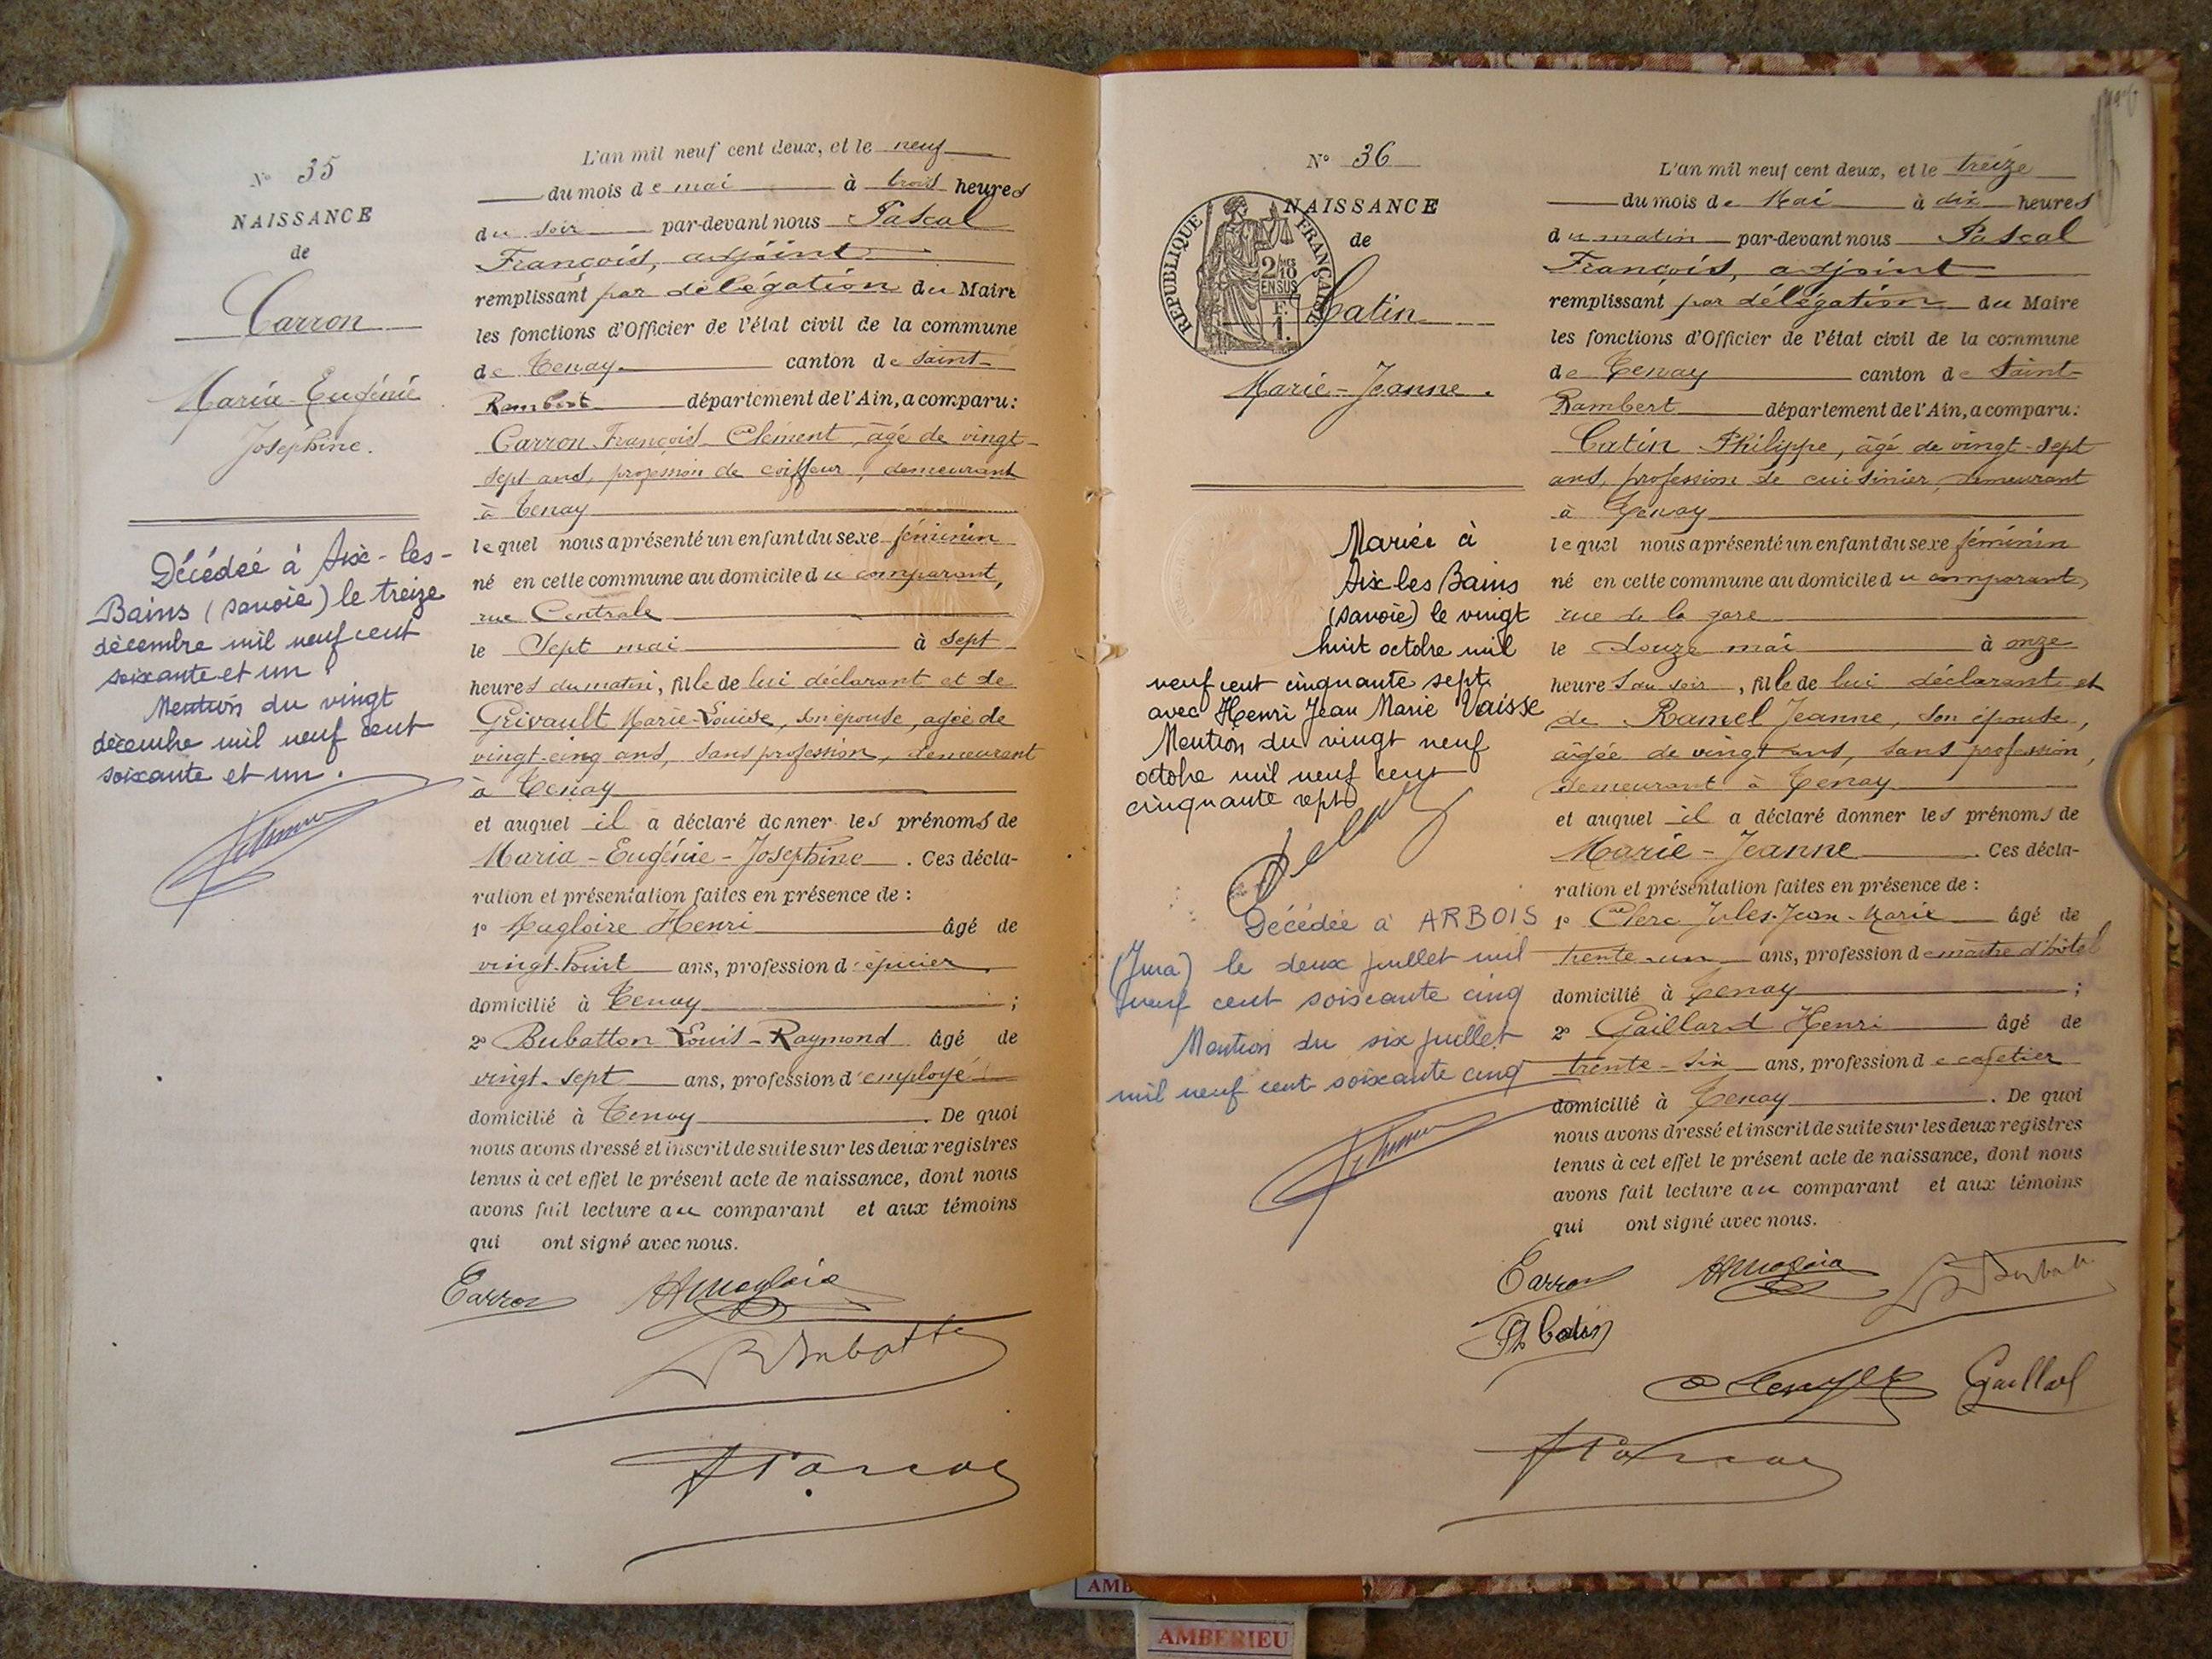 N° 35
NAISSANCE
de
Carron
Maria-Eugénie
Joséphine.
Décédée à Aix-les-
Bains (Savoie) le treize
décembre mil neuf cent
soixante et un.
Mention du vingt
décembre mil neuf cent
soixante et un.
L'an mil neuf cent deux, et le neuf
du mois de mai à trois heures
du soir par-devant nous Pascal
François, adjoint
remplissant par délégation du Maire
les fonctions d'Officier de l'état civil de la commune
de Tenay canton de Saint-
Rambert département de l'Ain, a comparu :
Carron François Clément, âgé de vingt-
sept ans, profession de coiffeur, demeurant
à Tenay
lequel nous a présenté un enfant du sexe féminin
né en cette commune au domicile du comparant,
rue Centrale
le Sept mai à sept
heures du matin, fille de lui déclarant et de
Grivault Marie-Louise, son épouse, agée de
vingt-cinq ans, sans profession, demeurant
à Tenay
et auquel il a déclaré donner les prénoms de
Maria-Eugénie-Joséphine. Ces décla-
ration et présentation faites en présence de :
1° Magloire Henri âgé de
vingt-huit ans, profession d'épicier
domicilié à Tenay ;
2° Bubatton Louis-Raymond âgé de
vingt-sept ans, profession d'employé
domicilié à Tenay. De quoi
nous avons dressé et inscrit de suite sur les deux registres
tenus à cet effet le présent acte de naissance, dont nous
avons fait lecture au comparant et aux témoins
qui ont signé avec nous.
Carron HMagloire
N° 36
NAISSANCE
de
REPUBLIQUE FRANÇAISE
2/10 EN SUS
F. 1.
Catin
Marie-Jeanne.
Mariée à
Aix les Bains
(Savoie) le vingt
huit octobre mil
neuf cent cinquante sept
avec Henri Jean Marie Vaisse
Mention du vingt neuf
octobre mil neuf cent
cinquante sept
Décédée à ARBOIS
(Jura) le deux juillet mil
neuf cent soixante cinq
Mention du six juillet
mil neuf cent soixante cinq
L'an mil neuf cent deux, et le treize
du mois de Mai à dix heures
du matin par-devant nous Pascal
François, adjoint
remplissant par délégation du Maire
les fonctions d'Officier de l'état civil de la commune
de Tenay canton de Saint-
Rambert département de l'Ain, a comparu :
Catin Philippe, âgé de vingt-sept
ans, profession de cuisinier, demeurant
à Tenay
lequel nous a présenté un enfant du sexe féminin
né en cette commune au domicile du comparant,
rue de la gare
le douze mai à onze
heures du soir, fille de lui déclarant et
de Ramel Jeanne, son épouse,
âgée de vingt ans, sans profession,
demeurant à Tenay
et auquel il a déclaré donner les prénoms de
Marie-Jeanne. Ces décla-
ration et présentation faites en présence de :
1° Clerc Jules-Jean-Marie âgé de
trente-un ans, profession de maître d'hôtel
domicilié à Tenay ;
2° Gaillard Henri âgé de
trente-six ans, profession de cafetier
domicilié à Tenay. De quoi
nous avons dressé et inscrit de suite sur les deux registres
tenus à cet effet le présent acte de naissance, dont nous
avons fait lecture au comparant et aux témoins
qui ont signé avec nous.
Carron HMagloire
Ph Catin
Gaillard
AMBERIEU